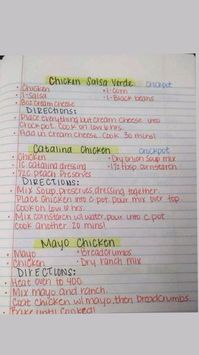 Chicken Salsa Verde crockpot
• Chicken • 1-Corn
• 1-Salsa • 1-Black beans
• 8oz cream cheese
DIRECTIONS:
• Place everything but cream cheese into
Crockpot. Cook on low 6 hrs.
• Add in cream cheese. Cook 30 mins!
Catalina Chicken crockpot
• Chicken • Dry onion soup mix
• 1C catalina dressing • 1 tbsp cornstarch
• 1/2C Peach Preserves
DIRECTIONS:
• Mix Soup, preserves, dressing together.
• Place chicken into c-pot. pour mix over top.
• Cook on low 6 hrs.
• Mix cornstarch w/ water, pour into c.pot
cook another 20 mins!
Mayo Chicken
• Mayo • Breadcrumbs
• Chicken • Dry ranch mix
DIRECTIONS:
• Heat oven to 400
• Mix mayo and ranch.
• Coat chicken w/ mayo, then breadcrumbs.
• Bake until cooked!